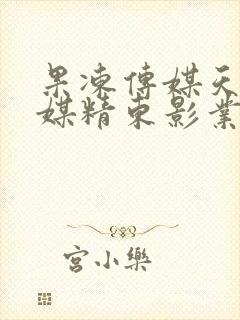 果凍傳媒天
媒精東影業
宮小樂